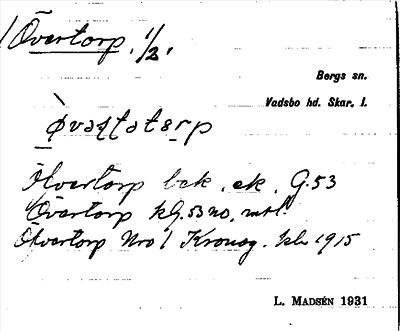 Övertorp. 1/2.
Bergs sn.
Vadsbo hd. Skar. l.
Övertorp bek. ek. G.53
Övertorp kG.53 no, mtl.
Övertorp Nro 1 Kronosg. kb 1915
L. MADSÉN 1931